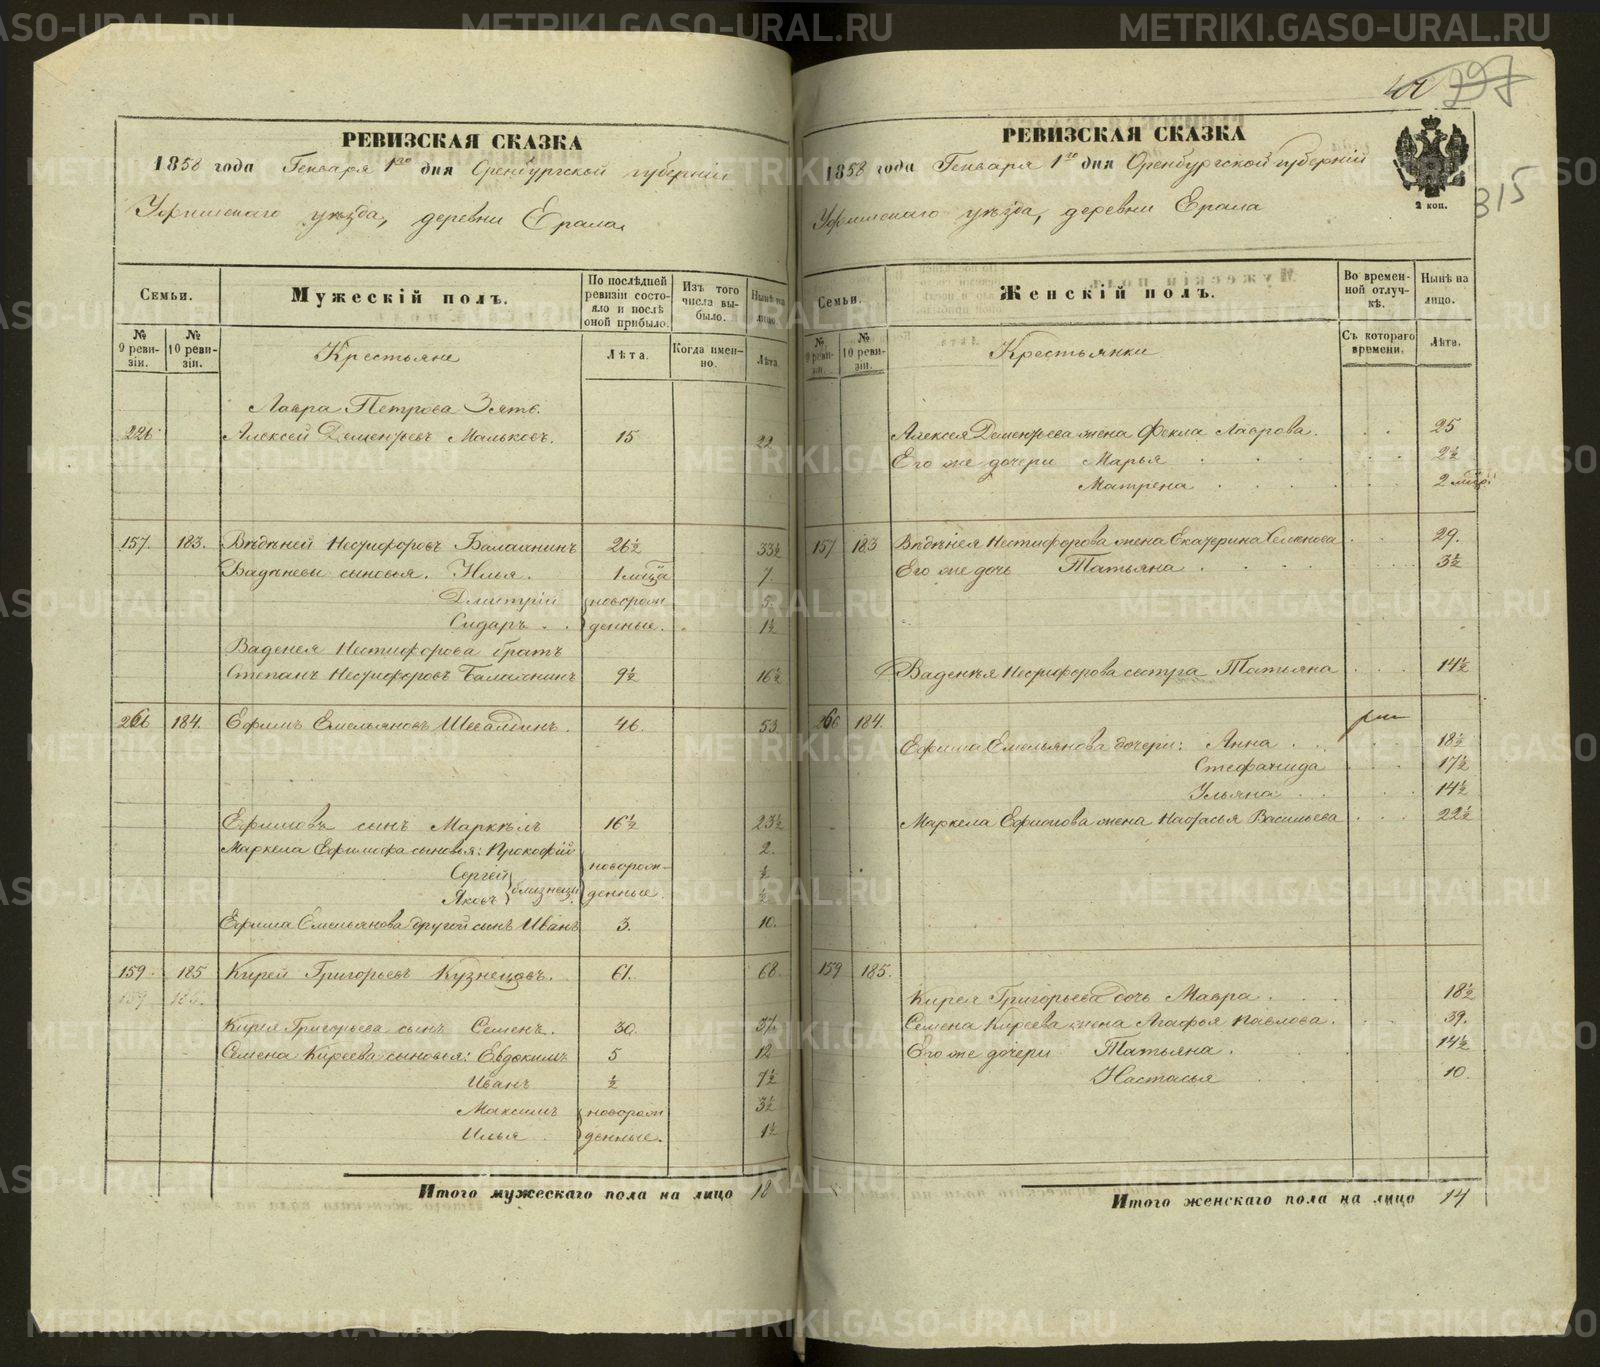 РЕВИЗСКАЯ СКАЗКА
1858 года Генваря 1го дня Оренбургской губернии
Уфимскаго уѣзда, деревни Ерала
Семьи.
Мужескій полъ.
По послѣдней ревизіи состояло и послѣ оной прибыло.
Изъ того числа выбыло.
Нынѣ на лицо.
№ 9 ревизіи.
№ 10 ревизіи.
Крестьяне
Лѣта.
Когда именно.
Лѣта.
Лавра Петрова Зять.
226 Алексей Дементьевъ Мальковъ. 15 22
157. 183. Нестифоровъ Балахнинъ 26½ 33½
сыновья. Илья. 1 7.
Дмитрій новорож 5.
Сидаръ . . денные. 1½
Ваденея Нестифорова братъ
Степанъ Нестифоровъ Балахнинъ 9½ 16½
266 184. Ефимъ Емельяновъ 46. 53
Ефимовъ сынъ Маркелъ 16½ 23½
Маркела Ефимова сыновья: Прокофій 2.
Сергей близнецы новорож- ½
Яковъ денные. ½
Ефима Емельянова другой сынъ Иванъ 3. 10.
159. 185 Кирей Григорьевъ Кузнецовъ. 61. 68.
159 185.
Кирея Григорьева сынъ Семенъ. 30. 37.
Семена Киреева сыновья: Евдокимъ 5 12
Иванъ ½ 7½
Максимъ новорож 3½
Илья . денные. 1½
Итого мужескаго пола на лицо 18
297
315
РЕВИЗСКАЯ СКАЗКА
1858 года Генваря 1го дня Оренбургской губерніи
Уфимскаго уѣзда, деревни Ерала
2 коп.
Семьи.
Женскій полъ.
Во временной отлучкѣ.
Нынѣ на лицо.
№ 9 ревизіи.
№ 10 ревизіи.
Крестьянки
Съ котораго времени.
Лѣта.
Алексея Дементьева жена Фекла Лаврова. 25
Его же дочери Марья 2½
Матрена 2
157 183 Нестифорова жена Екатерина Семенова 29.
Его же дочь Татьяна 3½
Ваденея Нестифорова сестра Татьяна 14½
266 184.
Ефима Емельянова дочери: Анна 18½
Стефанида 17½
Ульяна 14½
Маркела Ефимова жена Настасья Васильева 22½
159 185.
Кирея Григорьева дочь Мавра 18½
Семена Киреева жена Агафья Павлова. 39.
Его же дочери Татьяна 14½
Настасья 10.
Итого женскаго пола на лицо 14
METRIKI.GASO-URAL.RU